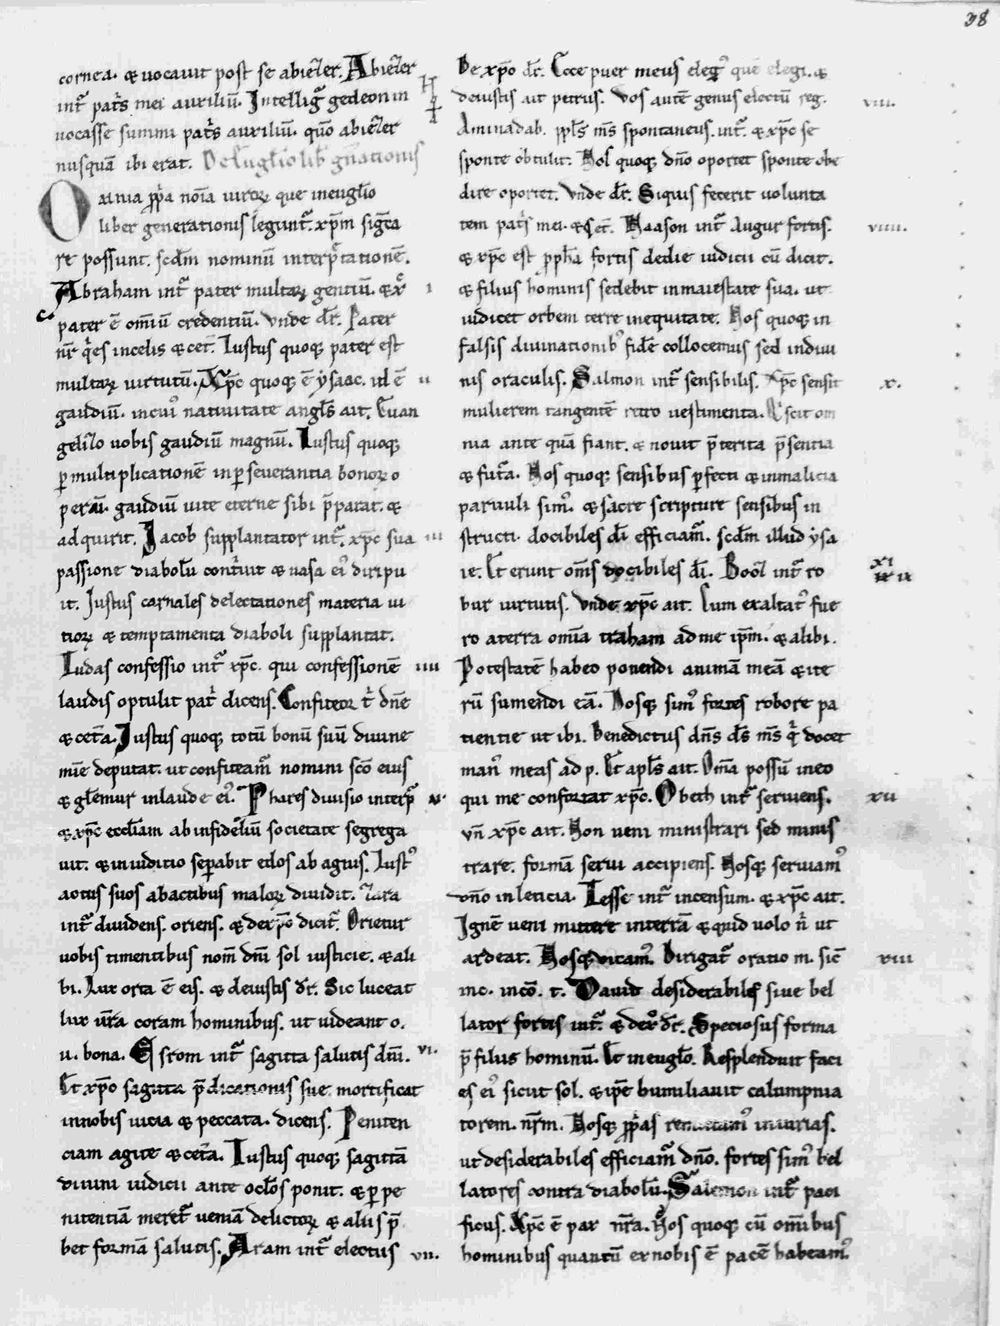 38
cornea. & uocauit post se abiezer. Abiezer
int̄ pat̄s mei auxiliū. Intelligit̄ gedeon in
uocasse summi pat̄s auxiliū. quō abiezer
nusquā ibi erat. De euḡlio lib̄ gn̄ationis
Omnia pp̄a noīa uirorꝝ que in euḡlio
liber generationis legunt̄. xp̄m sig̅ca
re possunt. scdm̄ nominū interp̄tationē.
Abraham int̄ pater multarꝝ gentiū. & xp̄c i
pater ē om̄iū credentiū. Vnde dr̄. Pater
nr̄ qui es in celis & cet̄. Iustus quoqꝫ pater est
multarꝝ uirtutū. Xp̄c quoqꝫ ē ysaac. id ē ii
gaudiū. in cuiꝰ natiuitate angl̄s ait. Euan
gelizo uobis gaudiū magnū. Iustus quoqꝫ
ꝑ multiplicationē in ꝑseuerantia bonorꝝ o
perū. gaudiū uite eterne sibi p̄parat. &
adquirit. Iacob supplantator int̄. xp̄c sua iii
passione diabolū cont̄uit & uasa eiꝰ diripu
it. Iustus carnales delectationes materia ui
tiorꝝ & temptamenta diaboli supplantat.
Iudas confessio int̄ xp̄c. qui confessionē iiii
laudis optulit pat̄ dicens. Confiteor t̄ dn̄e
& cet̄a. Iustus quoqꝫ totū bonū suū diuine
mīe deputat. ut confiteam̄ nomini sc̄o eius
& gl̄emur in laude eiꝰ. Phares diuisio interp̄ v.
& xp̄c eccl̄iam ab infideliū societate segrega
uit. & in iuditio seꝑabit edos ab agnis. Iustꝰ
actus suos ab actibus malorꝝ diuidit. Zara
int̄ diuidens. oriens. & de xp̄c dicit̄. Orietur
uobis timentibus nom̄ dn̄i sol iusticie. & ali
bi. Lux orta ē eis. & de iustis dr̄. Sic luceat
lux ur̄a coram hominibus. ut uideant o.
u. bona. Esrom int̄ sagitta salutis dn̄i. vi.
Et xp̄o sagitta p̄dicationis sue mortificat
in nobis uicia & peccata. dicens. Peniten
ciam agite & cet̄a. Iustus quoqꝫ sagittā
diuini iudicii ante ocl̄os ponit. & ꝑ pe
nitentiā meret̄ ueniā delictorꝝ & aliis p̄
bet formā salutis. Aram int̄ electus vii.
De xp̄o dr̄. Ecce puer meus elegꝰ quē elegi. &
de iustis ait petrus. Vos autē genus electū reg.
Aminadab. ppl̄s m̄s spontaneus. int̄. & xp̄c se viii.
sponte obtulit. Nos quoqꝫ dn̄o oportet sponte obe
dire oportet. Vnde dr̄. Siquis fecerit uolunta
tem pat̄s mei. & cet̄. Naason int̄ augur fortis. viiii.
& xp̄c est pp̄ha fortis de die iudicii cū dicit.
& filius hominis sedebit in maiestate sua. ut
iudicet orbem terre in equitate. Nos quoqꝫ in
falsis diuinationibꝰ fidē collocemus sed in diui
nis oraculis. Salmon int̄ sensibilis. Xp̄c sensit x.
mulierem tangentē retro uestimenta. & scit om
nia ante quā fiant. & nouit p̄terita p̄sentia
& fut̄a. Nos quoqꝫ sensibus ꝑfecti & in malicia
paruuli simꝰ. & sacre scripture sensibus in
structi. docibiles dī efficiam̄. scdm̄ illud ysa
ie. Et erunt om̄s docibiles dī. Booz int̄ ro xi
bur uirtutis. Vnde xp̄c ait. Cum exaltatꝰ fue
ro a terra omīa traham ad me ip̄m. & alibi.
Potestatē habeo ponendi animā meā & ite
rū sumendi eā. Nosqꝫ simꝰ fortes robore pa
tientie ut ibi. Benedictus dn̄s d̄s m̄s q̄ docet
manꝰ meas ad p. Et apl̄s ait. Om̄a possū in eo
qui me confortat xp̄c. Obeth int̄ seruiens. xii
Vn̄ xp̄c ait. Non ueni ministrari sed minis
trare. formā serui accipiens. Nosqꝫ seruiamꝰ
dn̄o in leticia. Iesse int̄ incensum. & xp̄c ait.
Ignē ueni mittere in terrā & quid uolo n̄ ut
ardeat. Nosqꝫ Dirigat̄ oratio m. sic̄ xiii
inc. in cō. t. Dauid desiderabilis siue bel
lator fortis int̄. & de xp̄o dr̄. Speciosus forma
p̄ filiis hominū. Et in euḡlo. Resplenduit faci
es eiꝰ sicut sol. & ip̄e humiliauit calumpnia
torem. nr̄m. Nosqꝫ pp̄as iniurias.
ut desiderabiles efficiam̄ dn̄o. fortes simꝰ bel
latores contra diabolū. Salemon int̄ paci
ficus. Xp̄c ē pax nr̄a. Nos quoqꝫ cū omībus
hominibus quantū ex nobis ē pacē habeamꝰ.